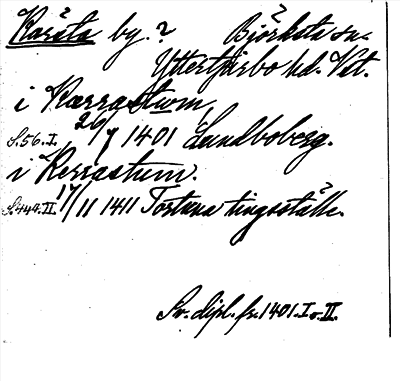 Karsta by. ? Björksta sn.
Yttertjurbo hd. Vst.
i Kærrastwm,
S. 56. I. 20/7 1401 Lundboberg.
i Kerrastum.
S. 444. II. 17/11 1411 Tortuna tingsställe.
Sv. dipl. fr. 1401. I o. II.